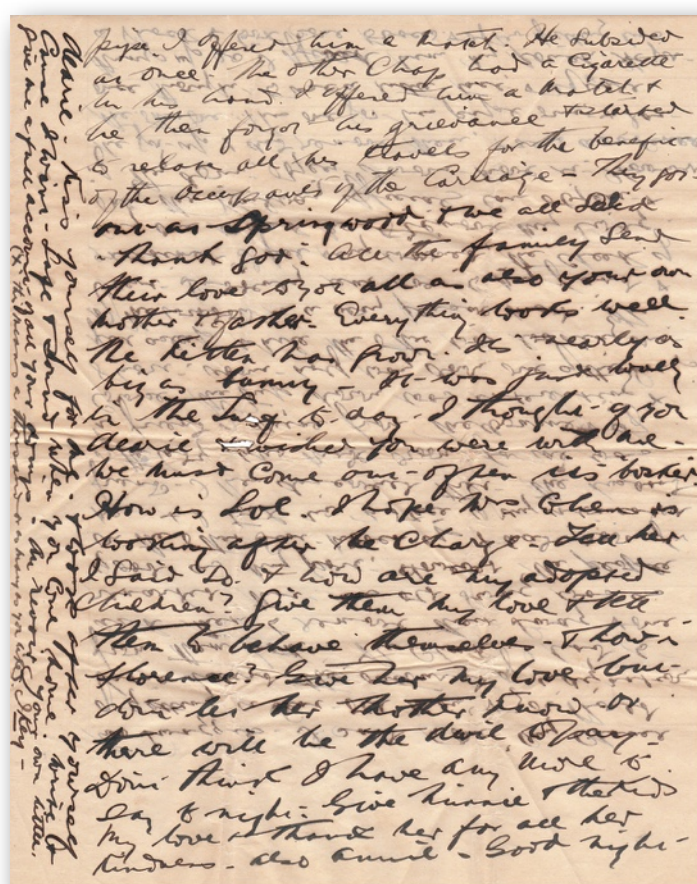 pipe. I offered him a match. He subsided
at once. The other Chap had a Cigarette
in his hand. I offered him a match &
he then forgot his grievance & started
to relate all his travels for the benefit
of the occupants of the Carriage - They got
out at Springwood & we all said
"thank God". All the family send
their love to you all as also your own
mother & father. Everything looks well.
The kitten has grown. Its nearly as
big as bunny - It was just lovely
in the to day. I thought of you
dearie & wished you were with me.
We must come out often its bosker
How is Lol. I hope Mrs is
looking after he charge - Tell her
I said so. & how are my adopted
Children? Give them my love & tell
them to behave themselves - & how is
Florence? Give her my love but
dont let her mother know or
there will be the devil to pay -
Dont think I have any more to
say to night - Give Winnie & the kids
my love & thank her for all her
kindness - also Annie - Good night -
dearie - kiss yourself for me - & look after yourself
Come home & when you come home. write &
give me a full account of all your doings - Au revoir your own